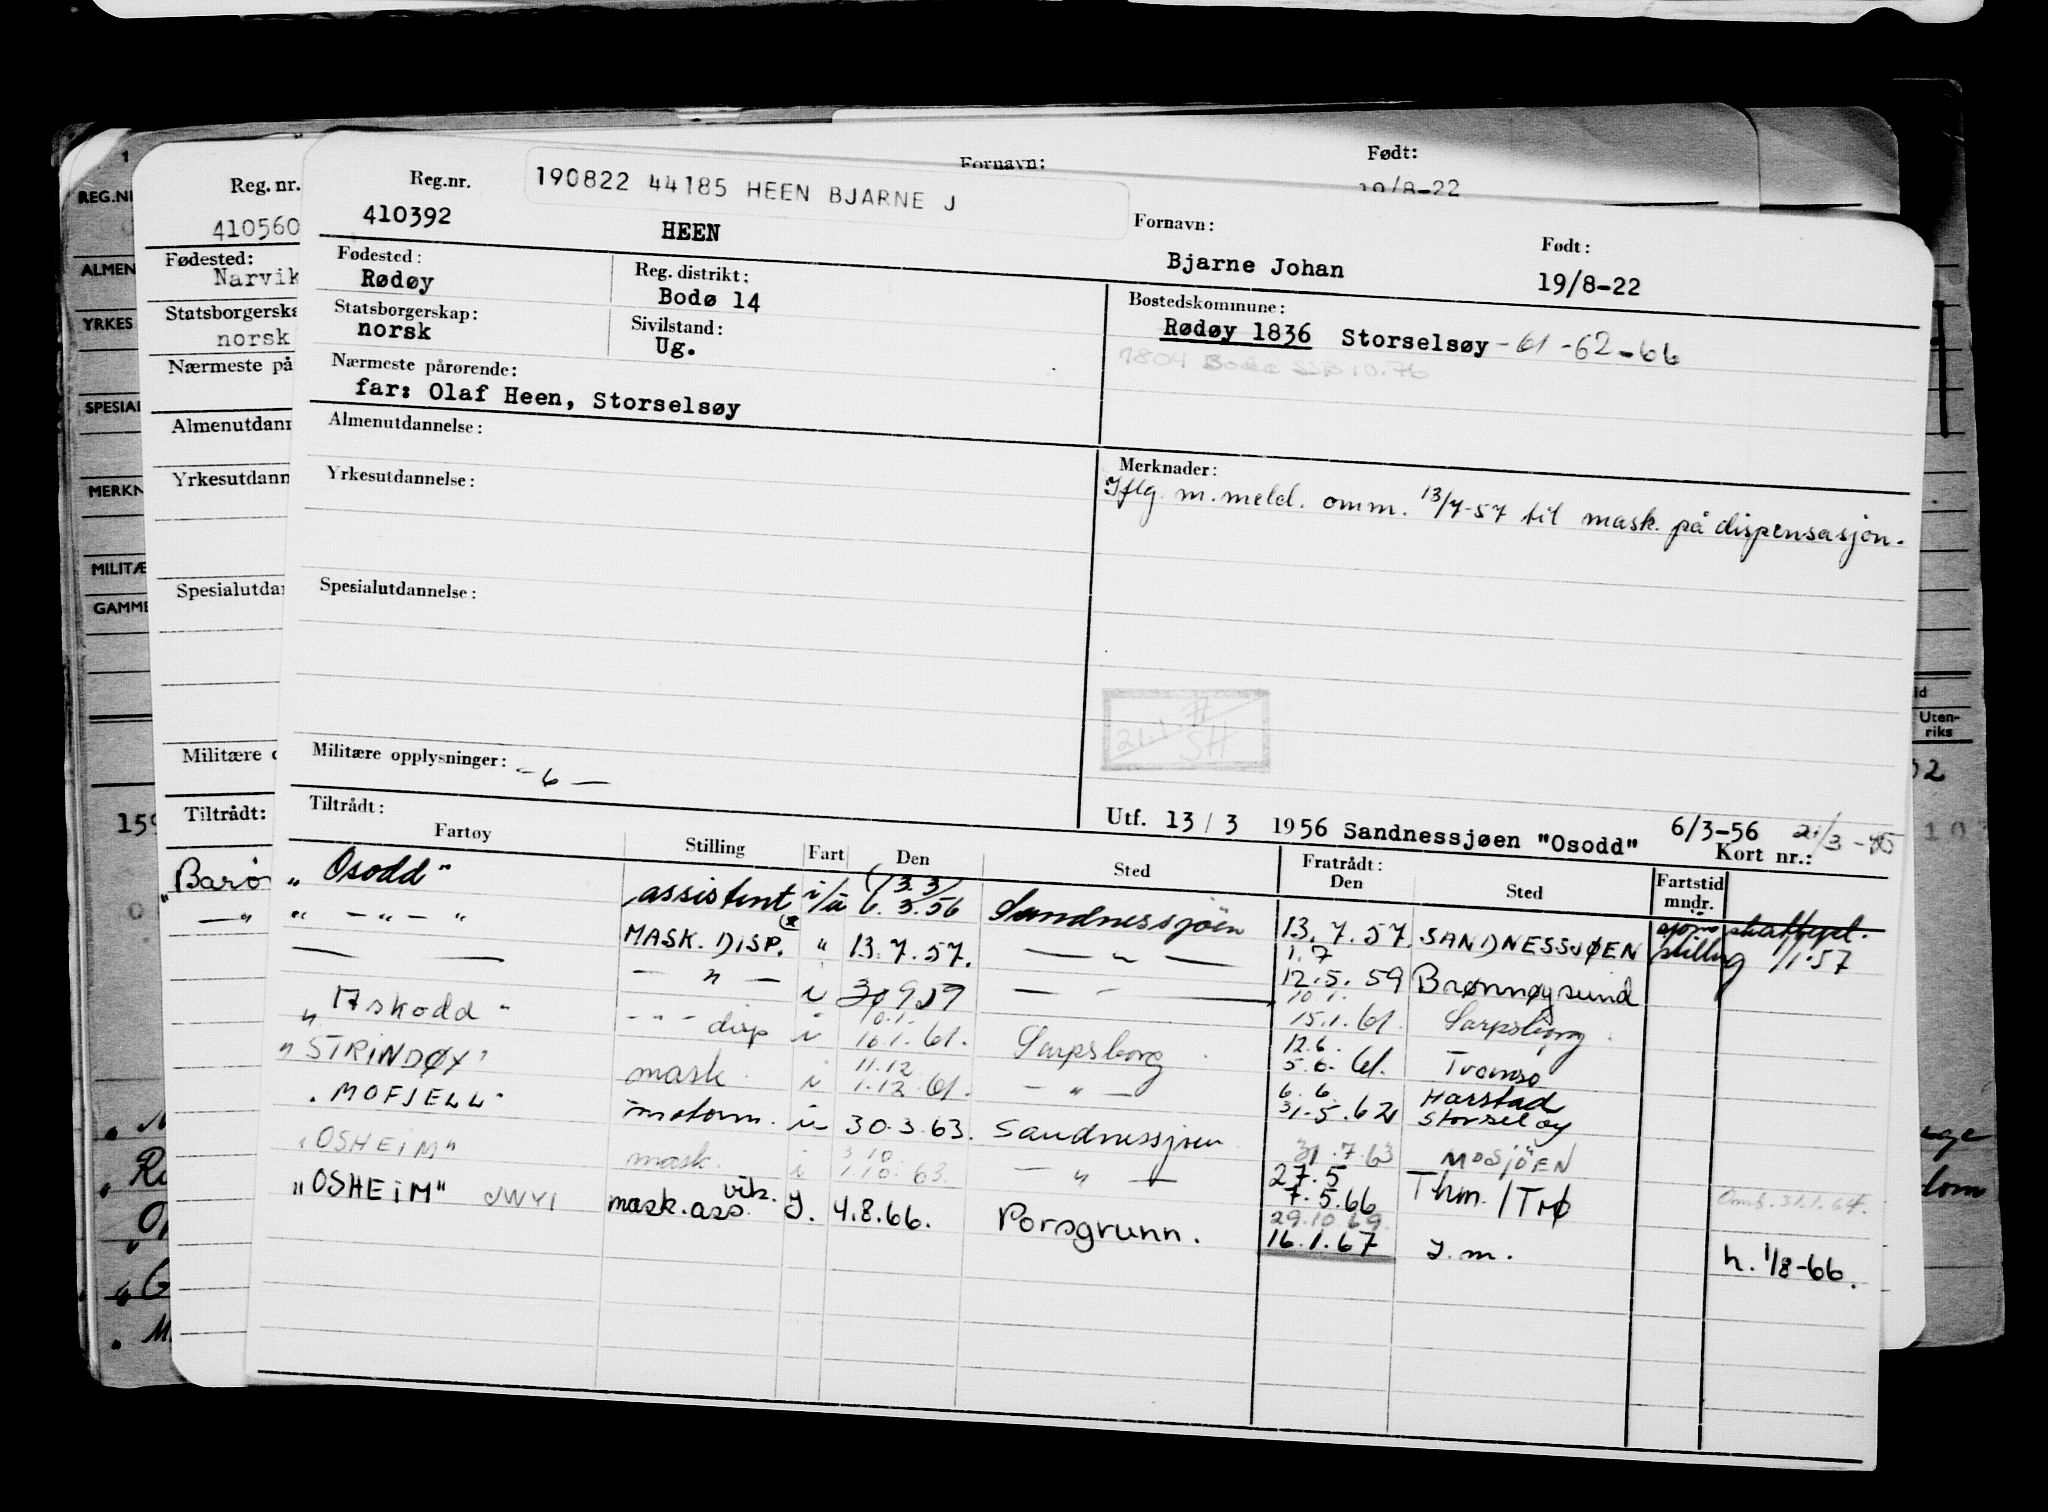 190822 44185 HEEN BJARNE J
Reg.nr.
410392
HEEN
Fornavn:
Bjarne Johan
Født:
19/8-22
Fødested:
Rødøy
Reg. distrikt:
Bodø 14
Bostedskommune:
Rødøy 1836 Storselsøy -61 -62 -66
Statsborgerskap:
norsk
Sivilstand:
Ug.
Nærmeste pårørende:
far: Olaf Heen, Storselsøy
Almenutdannelse:
Yrkesutdannelse:
Merknader:
Iflg. m. meld. omm. 13/7-57 til mask. på dispensasjon.
Spesialutdannelse:
Militære opplysninger: - 6 -
Utf. 13 / 3 1956 Sandnessjøen "Osodd" 6/3-56
Kort nr.:
Tiltrådt:
Fartøy Stilling Fart Den Sted
Fratrådt:
Den Sted
Fartstid mndr.
"Osodd" assistent i/u 13.3 6.3.56 Sandnessjöen 13.7.57 SANDNESSJØEN
" - " - " MASK. DISP. " 13.7.57. - " - 1.7 12.5.59 Brønnøysund
- " - i - " - 10.1. 15.1.61. Sarpsborg
"Askodd" - " - disp i 10.1. 16.1.61. Sarpsborg 12.6. 5.6.61. Tromsø
"STRINDØY" mask. i 11.12 1.12.61. - " - 6.6. 31.5.62 Harstad Storseløy
"MOFJELL" motorm. u 30.3.63. Sandnessjøen 31.7.63 MOSJÖEN
"OSHEiM" mask. i 3.10. 1.10.63. - " - 27.5 7.5.66 Thm. / TrØ Omb. 31.1.64.
"OSHEiM" JWYI mask.ass. vik. I. 4.8.66. Porsgrunn. 29.10.69. 16.1.67 I.m. h. 1/8-66.
Fornavn:
Født:
19/8-22
Reg. nr.
410560
Fødested:
Narvik
norsk
Tiltrådt:
REG.NR
ALMEN
YRKES
SPESIAL
MERKN
MILITÆ
GAMME
Uten-
riks